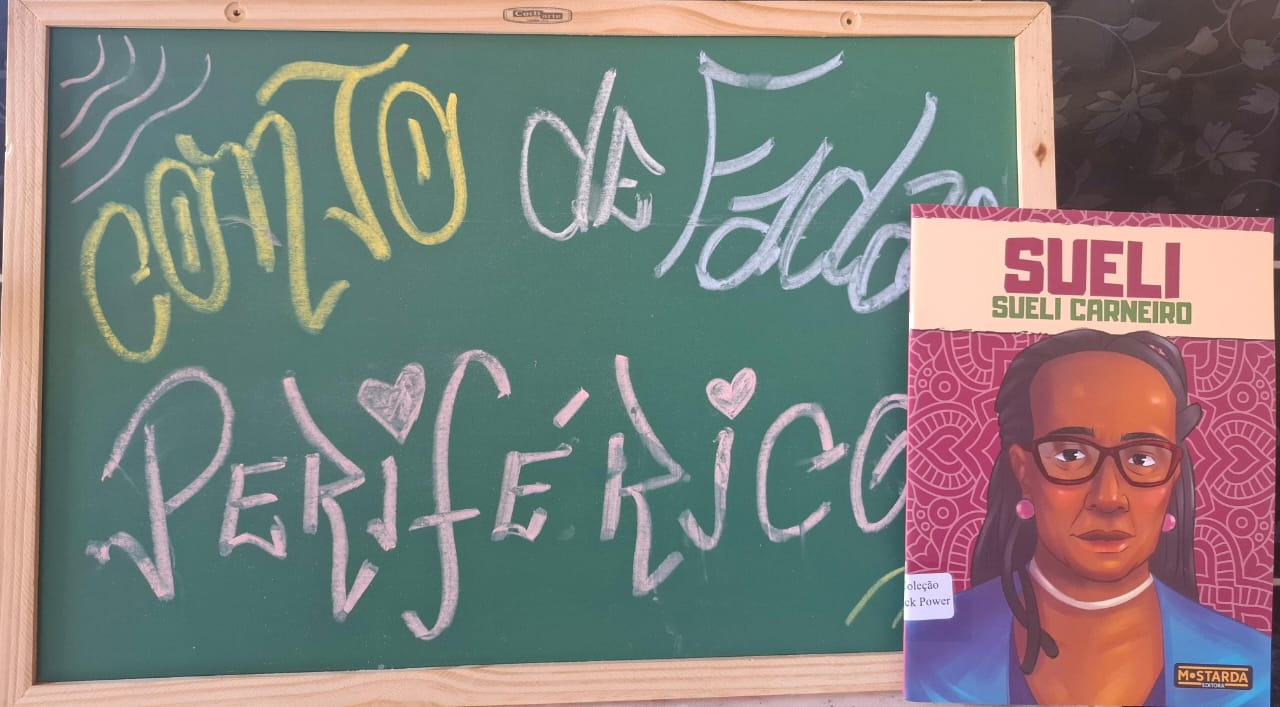 CONTO de Fadas
PERIFÉRICO
SUELI
SUELI CARNEIRO
oleção
ck Power
MOSTARDA
EDITORA